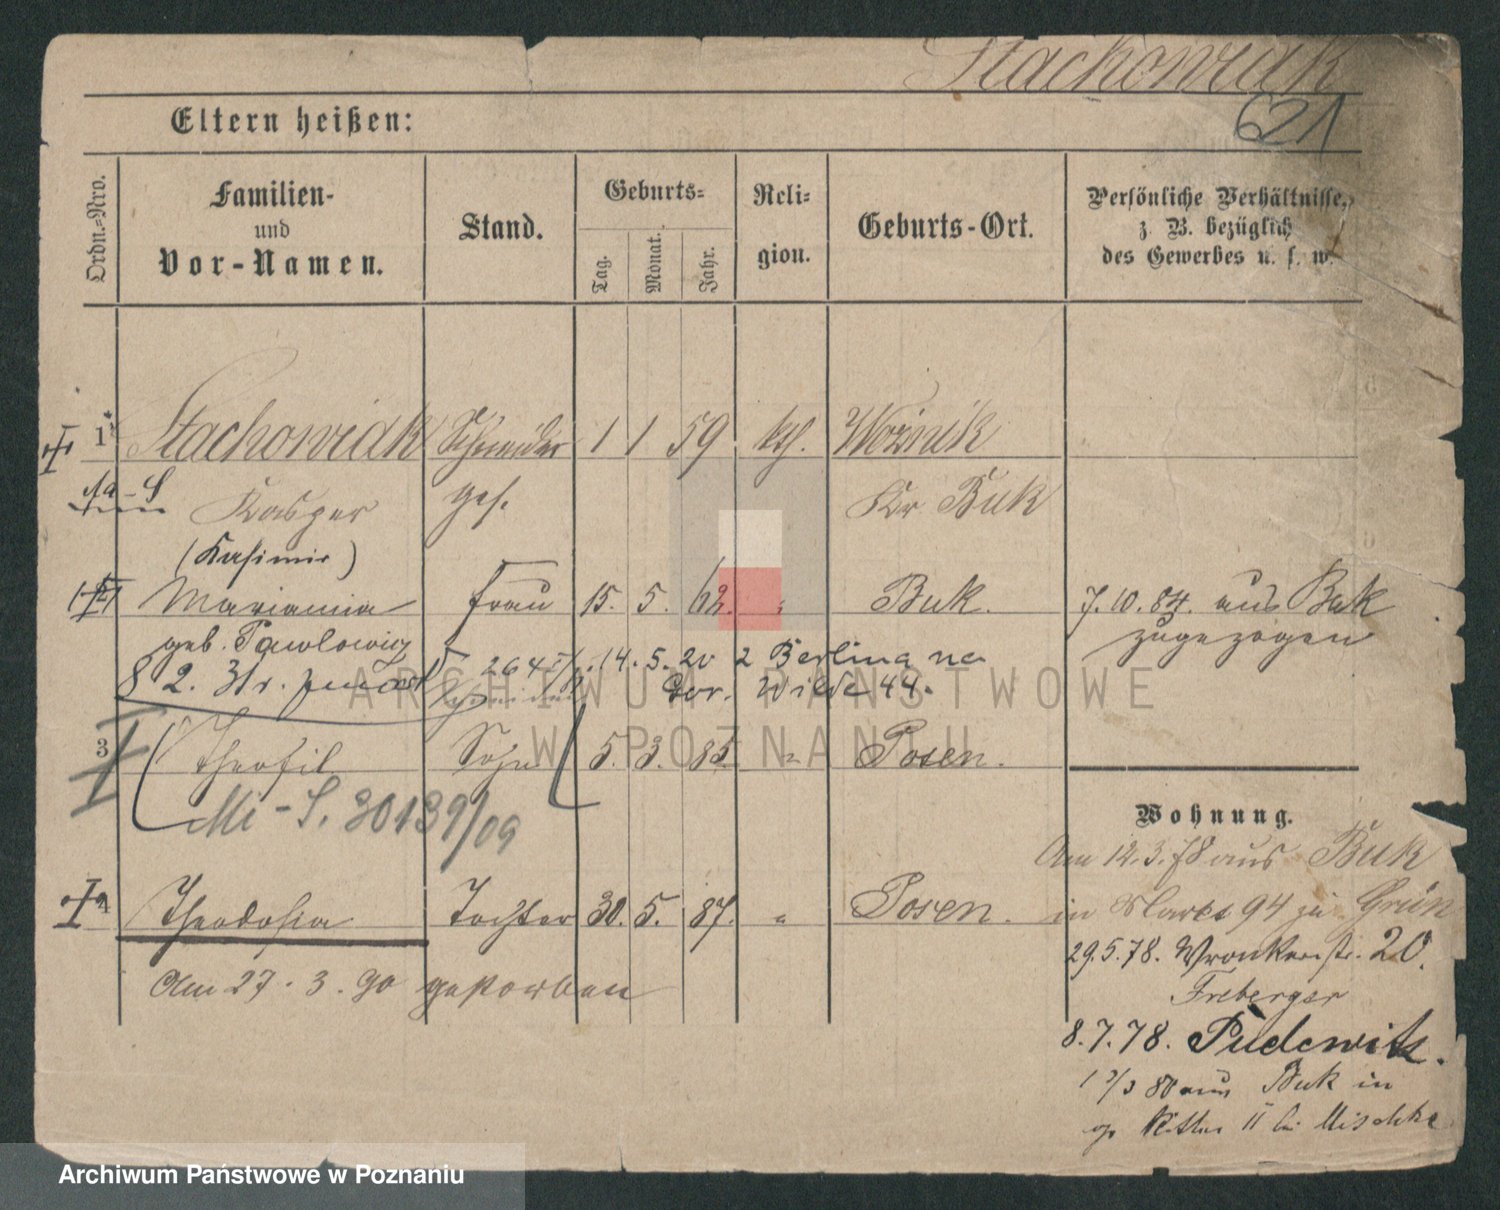 Stachowiak
621
Eltern heißen:
Ordn.-Nro.
Familien- und Vor-Namen.
Stand.
Geburts-
Tag.
Monat.
Jahr.
Reli-
gion.
Geburts-Ort.
Persönliche Verhältnisse,
z. B. bezüglich
des Gewerbes u. s. w.
1 Stachowiak Schneider 1 1 59 kth. Woźnik
Kasper ges. Kr Buk
(Kasimir)
Marianna Frau 15. 5. 62. " Buk. 7. 10. 84. aus Buk
geb. Pawlowicz zugezogen
14. 5. 20 2 Berlina na
Gor. Wilde 44.
3 Theofil Sohn 5. 3. 85 " Posen.
Mi - S. 30139/09
Wohnung.
Am 12. 3. 78 aus Buk
4 Theodosia Tochter 30. 5. 87. " Posen. in Markt 94 zu Grün
29. 5. 78. Wronkerstr. 20.
Am 27. 3. 90 gestorben
Freberger
8. 7. 78. Pudewitz.
80 aus Buk in
gr Ritter 11 bei Mischke
ARCHIWUM PAŃSTWOWE
W POZNANIU
Archiwum Państwowe w Poznaniu